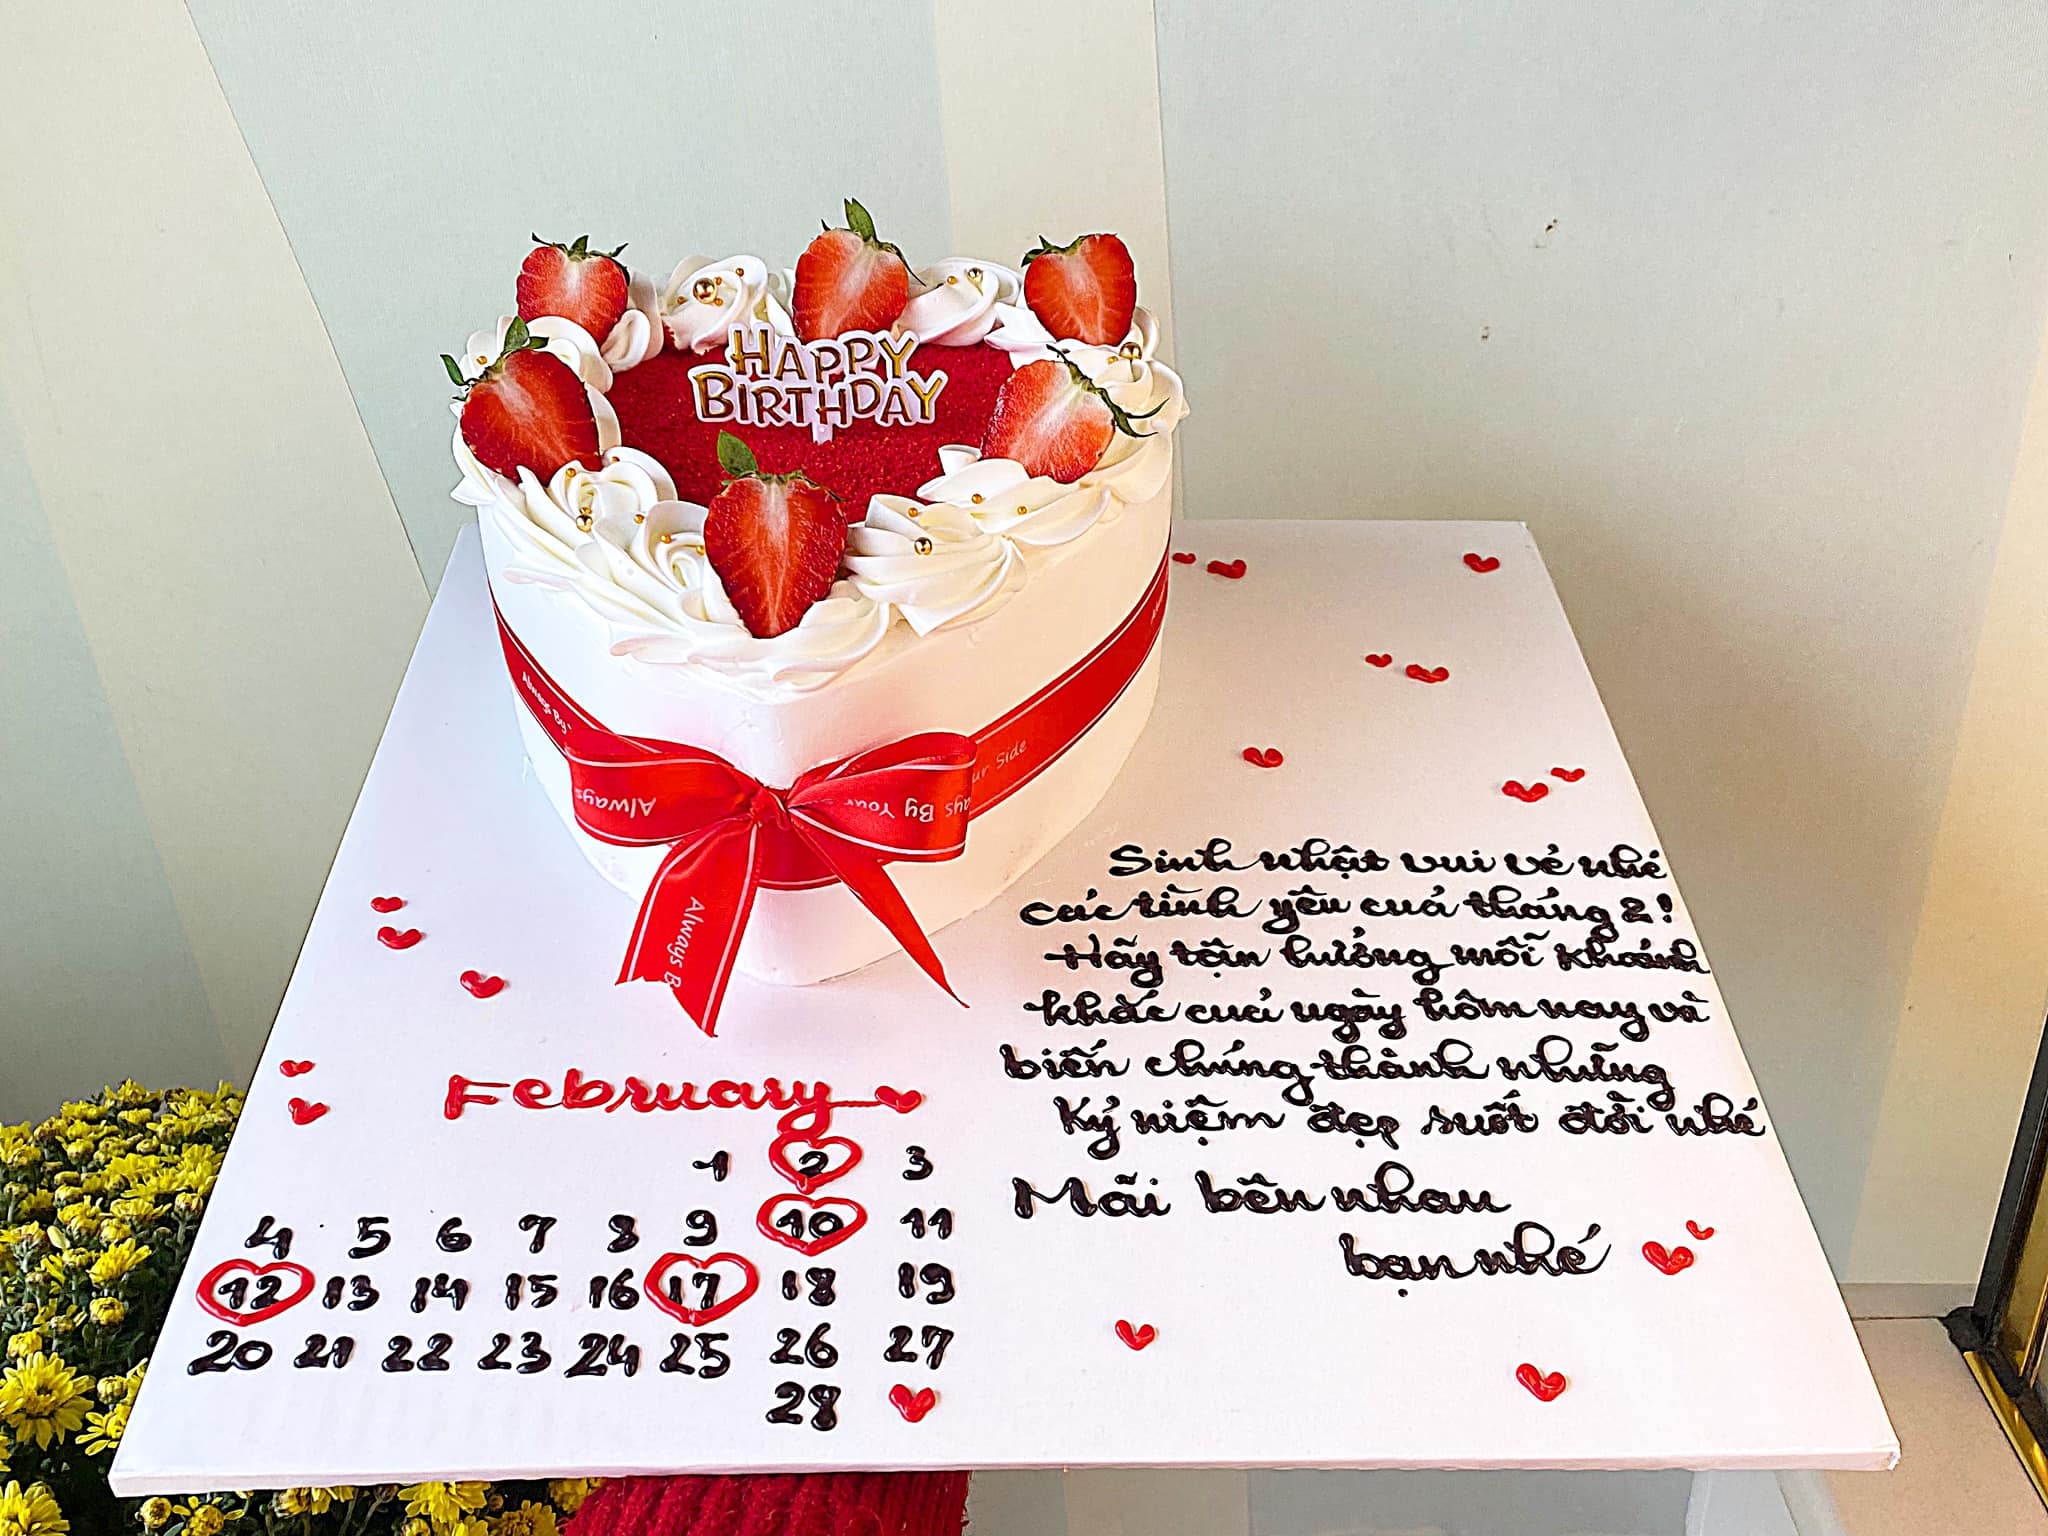 HAPPY
BIRTHDAY
Always By
ur Side
Always
ays By Your
Always B
Sinh nhật vui vẻ nhé
các tình yêu cuả tháng 2!
Hãy tận hưởng mỗi khoảnh
khắc cuả ngày hôm nay và
biến chúng thành những
kỷ niệm đẹp suốt đời nhé
Mãi bên nhau
bạn nhé
February
1 2 3
4 5 6 7 8 9 10 11
12 13 14 15 16 17 18 19
20 21 22 23 24 25 26 27
28